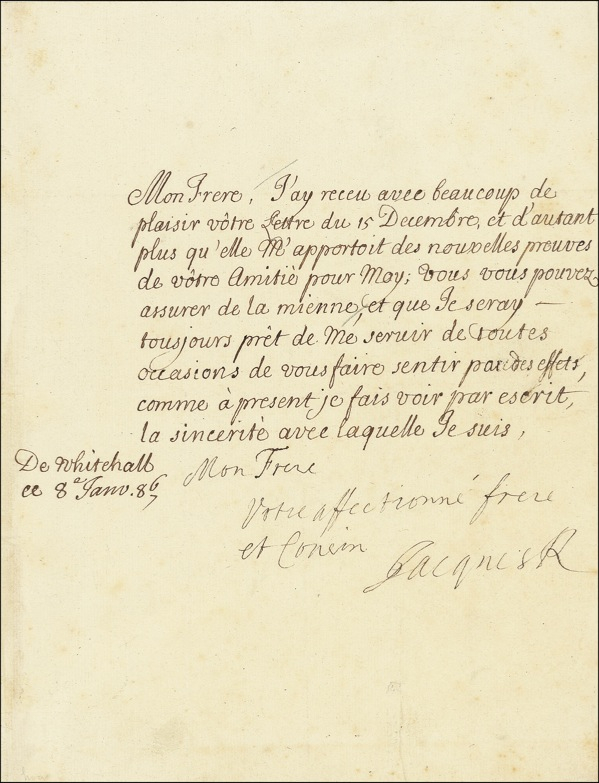 Mon Frere, J'ay receu avec beaucoup de
plaisir vôtre Lettre du 15 Decembre, et d'autant
plus qu'elle M'apportoit des nouvelles preuves
de vôtre Amitiè pour Moy; Vous vous pouvez
assurer de la mienne, et que Je seray —
tousjours prêt de Me seruir de toutes
occasions de vous faire sentir par des effets,
comme à present je fais voir par escrit,
la sincerite avec laquelle Je suis,
De Whitehall
ce 8e Janv. 86/7
Mon Frere
Votre affectionné frere
et Cousin
Jacques R